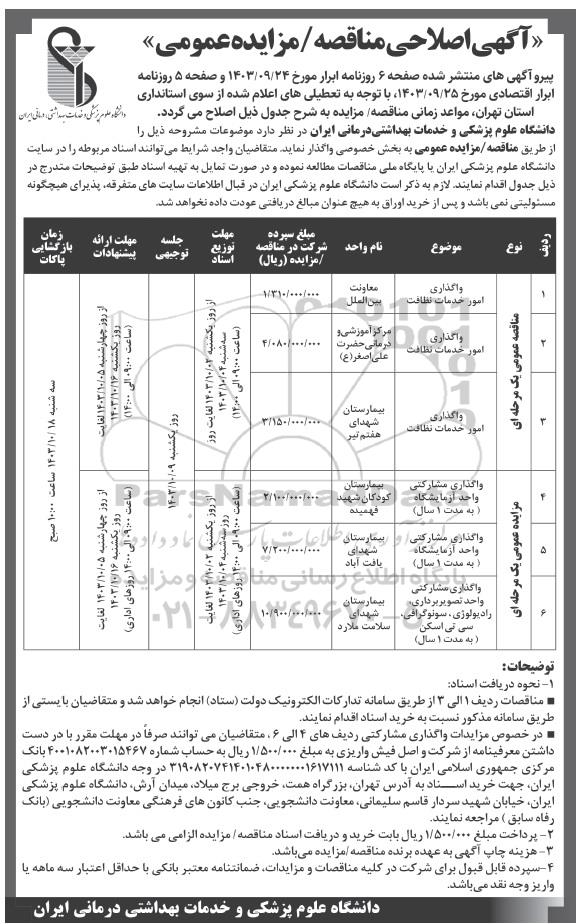 «آگهی اصلاحی مناقصه/مزایده عمومی»
دانشگاه علوم پزشکی و خدمات بهداشتی، درمانی ایران
پیرو آگهی های منتشر شده صفحه ۶ روزنامه ابرار مورخ ۱۴۰۳/۰۹/۲۴ و صفحه ۵ روزنامه
ابرار اقتصادی مورخ ۱۴۰۳/۰۹/۲۵، با توجه به تعطیلی های اعلام شده از سوی استانداری
استان تهران، مواعد زمانی مناقصه/ مزایده به شرح جدول ذیل اصلاح می گردد.
دانشگاه علوم پزشکی و خدمات بهداشتی‌درمانی ایران در نظر دارد موضوعات مشروحه ذیل را
از طریق مناقصه/مزایده عمومی به بخش خصوصی واگذار نماید. متقاضیان واجد شرایط می‌توانند اسناد مربوطه را در سایت
دانشگاه علوم پزشکی ایران یا پایگاه ملی مناقصات مطالعه نموده و در صورت تمایل به تهیه اسناد طبق توضیحات مندرج در
ذیل جدول اقدام نمایند. لازم به ذکر است دانشگاه علوم پزشکی ایران در قبال اطلاعات سایت های متفرقه، پذیرای هیچگونه
مسئولیتی نمی باشد و پس از خرید اوراق به هیچ عنوان مبالغ دریافتی عودت داده نخواهد شد.
ردیف
نوع
موضوع
نام واحد
مبلغ سپرده
شرکت در مناقصه
/مزایده (ریال)
مهلت
توزیع
اسناد
جلسه
توجیهی
مهلت ارائه
پیشنهادات
زمان
بازگشایی
پاکات
مناقصه عمومی یک مرحله ای
۱
واگذاری
امور خدمات نظافت
معاونت
بین‌الملل
۱/۳۱۰/۰۰۰/۰۰۰
۲
واگذاری
امور خدمات نظافت
مرکز آموزشی و
درمانی حضرت
علی‌اصغر(ع)
۴/۰۸۰/۰۰۰/۰۰۰
۳
واگذاری
امور خدمات نظافت
بیمارستان
شهدای
هفتم تیر
۳/۱۵۰/۰۰۰/۰۰۰
از روز یکشنبه ۱۴۰۳/۱۰/۰۲ لغایت روز
سه‌شنبه ۱۴۰۳/۱۰/۰۴
(ساعت ۰۹:۰۰ الی ۱۴:۰۰)
روز یکشنبه ۱۴۰۳/۱۰/۰۹
از روز چهارشنبه ۱۴۰۳/۱۰/۰۵ لغایت
روز یکشنبه ۱۴۰۳/۱۰/۱۶
(ساعت ۰۹:۰۰ الی ۱۴:۰۰)
سه شنبه ۱۴۰۳/۱۰/۱۸ ساعت ۱۰:۰۰ صبح
مزایده عمومی یک مرحله ای
۴
واگذاری مشارکتی
واحد آزمایشگاه
( به مدت ۱ سال)
بیمارستان
کودکان شهید
فهمیده
۲/۱۰۰/۰۰۰/۰۰۰
۵
واگذاری مشارکتی
واحد آزمایشگاه
( به مدت ۱ سال)
بیمارستان
شهدای
یافت آباد
۷/۲۰۰/۰۰۰/۰۰۰
۶
واگذاری مشارکتی
واحد تصویربرداری،
رادیولوژی، سونوگرافی،
سی تی اسکن
( به مدت ۱ سال)
بیمارستان
شهدای
سلامت ملارد
۱۰/۹۰۰/۰۰۰/۰۰۰
از روز یکشنبه ۱۴۰۳/۱۰/۰۲ لغایت
روز سه‌شنبه ۱۴۰۳/۱۰/۰۴
(ساعت ۰۹:۰۰ الی ۱۴:۰۰ روزهای اداری)
از روز چهارشنبه ۱۴۰۳/۱۰/۰۵ لغایت
روز یکشنبه ۱۴۰۳/۱۰/۱۶
(ساعت ۰۹:۰۰ الی ۱۴:۰۰ روزهای اداری)
توضیحات:
۱- نحوه دریافت اسناد:
■ مناقصات ردیف ۱ الی ۳ از طریق سامانه تدارکات الکترونیک دولت (ستاد) انجام خواهد شد و متقاضیان بایستی از
طریق سامانه مذکور نسبت به خرید اسناد اقدام نمایند.
■ در خصوص مزایدات واگذاری مشارکتی ردیف های ۴ الی ۶ ، متقاضیان می توانند صرفاً در مهلت مقرر با در دست
داشتن معرفینامه از شرکت و اصل فیش واریزی به مبلغ ۱/۵۰۰/۰۰۰ ریال به حساب شماره ۴۰۰۱۰۸۲۰۰۳۰۱۵۴۶۷ بانک
مرکزی جمهوری اسلامی ایران با کد شناسه ۳۱۹۰۸۲۰۷۴۱۴۰۱۰۴۸۰۰۰۰۰۰۰۱۶۱۷۱۱۱ در وجه دانشگاه علوم پزشکی
ایران، جهت خرید اسـناد به آدرس تهران، بزرگراه همت، خروجی برج میلاد، میدان آرش، دانشگاه علوم پزشکی
ایران، خیابان شهید سردار قاسم سلیمانی، معاونت دانشجویی، جنب کانون های فرهنگی معاونت دانشجویی (بانک
رفاه سابق ) مراجعه نمایند.
۲- پرداخت مبلغ ۱/۵۰۰/۰۰۰ ریال بابت خرید و دریافت اسناد مناقصه/ مزایده الزامی می باشد.
۳- هزینه چاپ آگهی به عهده برنده مناقصه/مزایده می‌باشد.
۴-سپرده قابل قبول برای شرکت در کلیه مناقصات و مزایدات، ضمانتنامه معتبر بانکی با حداقل اعتبار سه ماهه یا
واریز وجه نقد می‌باشد.
دانشگاه علوم پزشکی و خدمات بهداشتی درمانی ایران